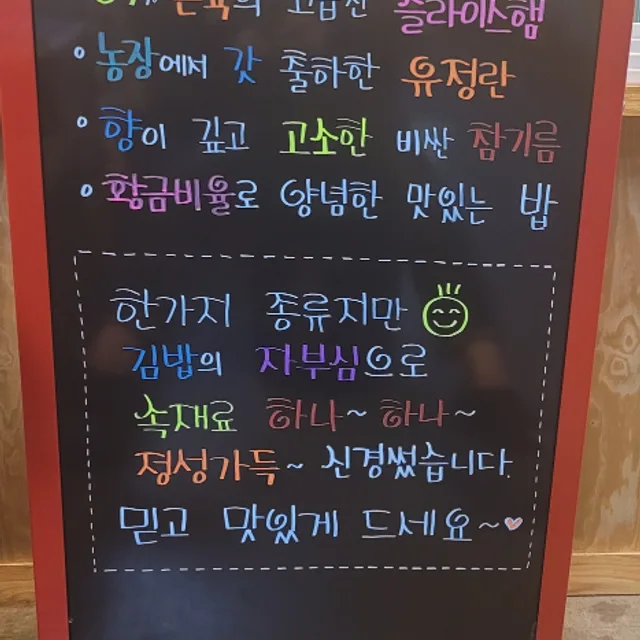 돈육의 고급진 슬라이스햄
• 농장에서 갓 출하한 유정란
• 향이 깊고 고소한 비싼 참기름
• 황금비율로 양념한 맛있는 밥
한가지 종류지만
김밥의 자부심으로
속재료 하나~ 하나~
정성가득~ 신경썼습니다.
믿고 맛있게 드세요~♥